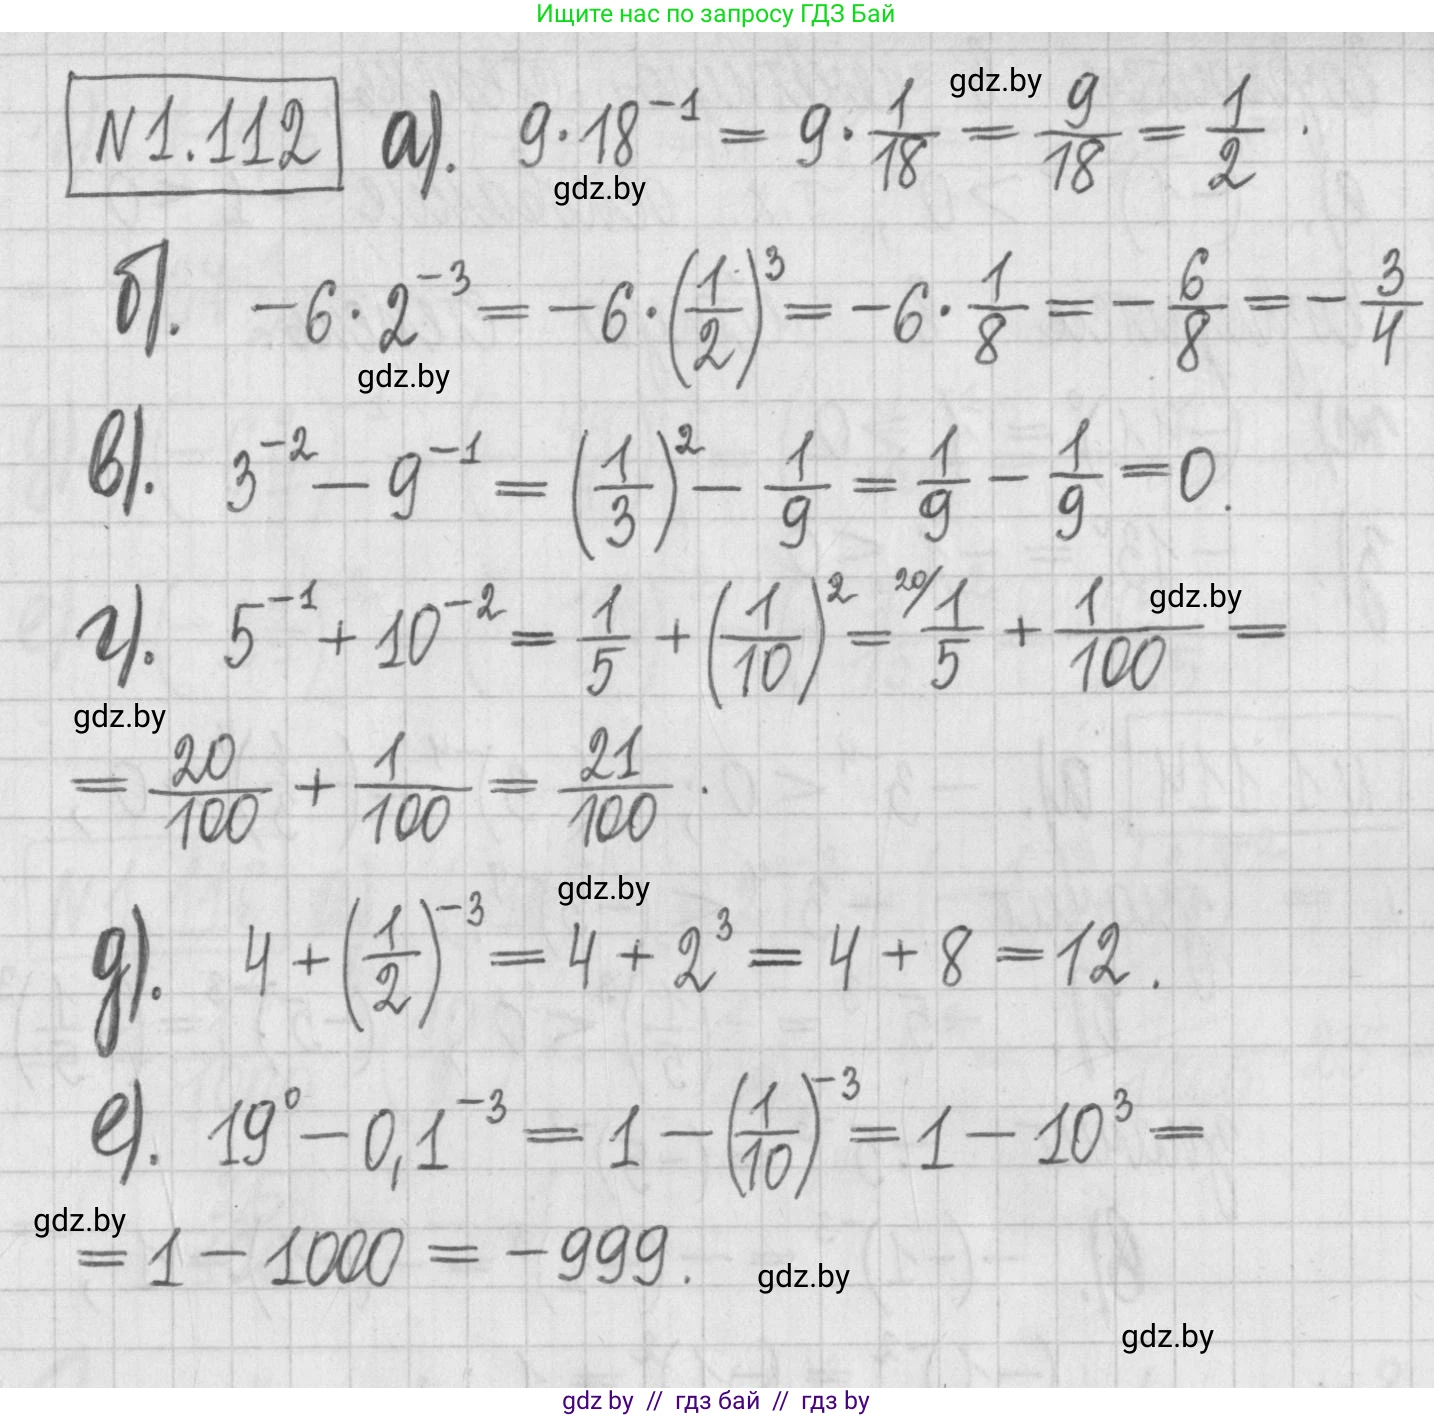 Ищите нас по запросу ГДЗ Бай
gdz.by
N1.112 а). 9·18⁻¹ = 9·1/18 = 9/18 = 1/2.
gdz.by
б). -6·2⁻³ = -6·(1/2)³ = -6·1/8 = -6/8 = -3/4
gdz.by
в). 3⁻² - 9⁻¹ = (1/3)² - 1/9 = 1/9 - 1/9 = 0.
gdz.by
г). 5⁻¹ + 10⁻² = 1/5 + (1/10)² = ²⁰⁄ 1/5 + 1/100 =
gdz.by
= 20/100 + 1/100 = 21/100.
gdz.by
д). 4 + (1/2)⁻³ = 4 + 2³ = 4 + 8 = 12.
е). 19⁰ - 0,1⁻³ = 1 - (1/10)⁻³ = 1 - 10³ =
gdz.by
= 1 - 1000 = -999.
gdz.by
gdz.by
gdz by // гдз бай // гдз by